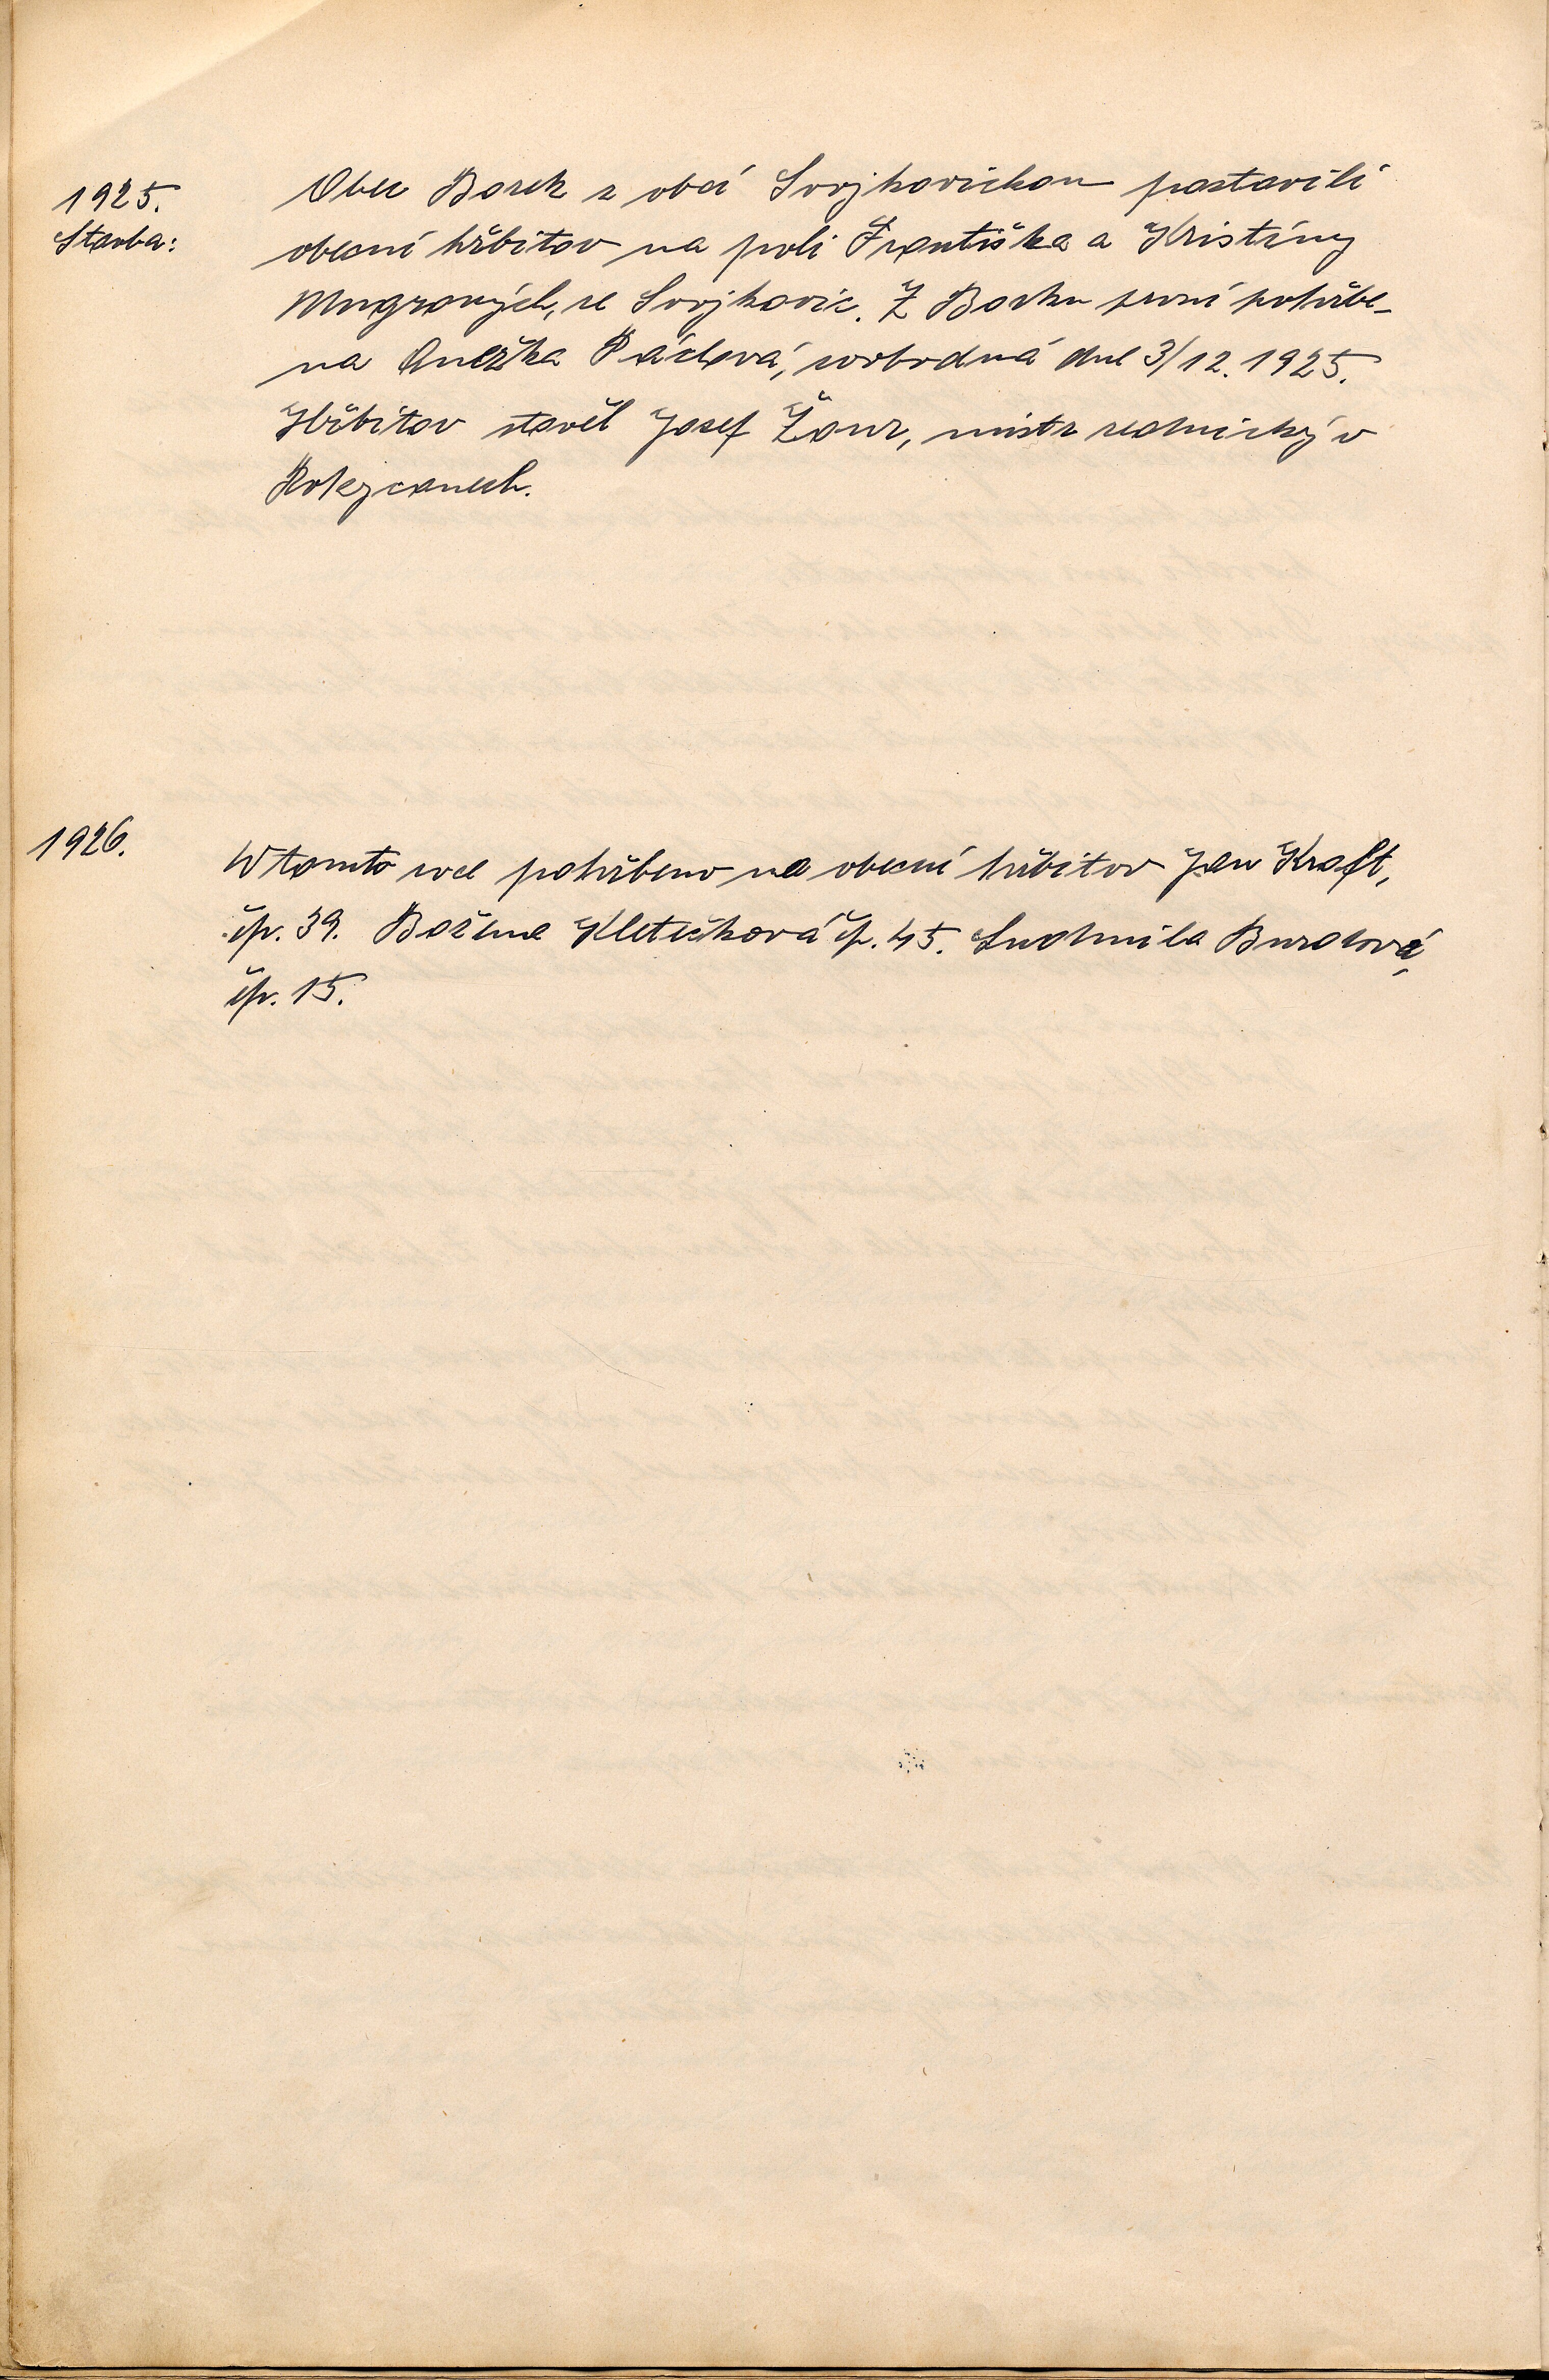 1925.
Stavba:
Obec Borek s obcí Svojkovickou postavili
obecní hřbitov na poli Františka a Kristíny
ze Svojkovic. Z Borku první pohřbe-
na Anežka svobodná dne 3/12. 1925.
Hřbitov stavěl Josef Žour, mistr zednický v
Rokycanech.
1926.
V tomto roce pohřbeno na obecní hřbitov Jan Kraft,
čp. 39. Božena Kletečková čp. 45. Ludmila
čp. 15.